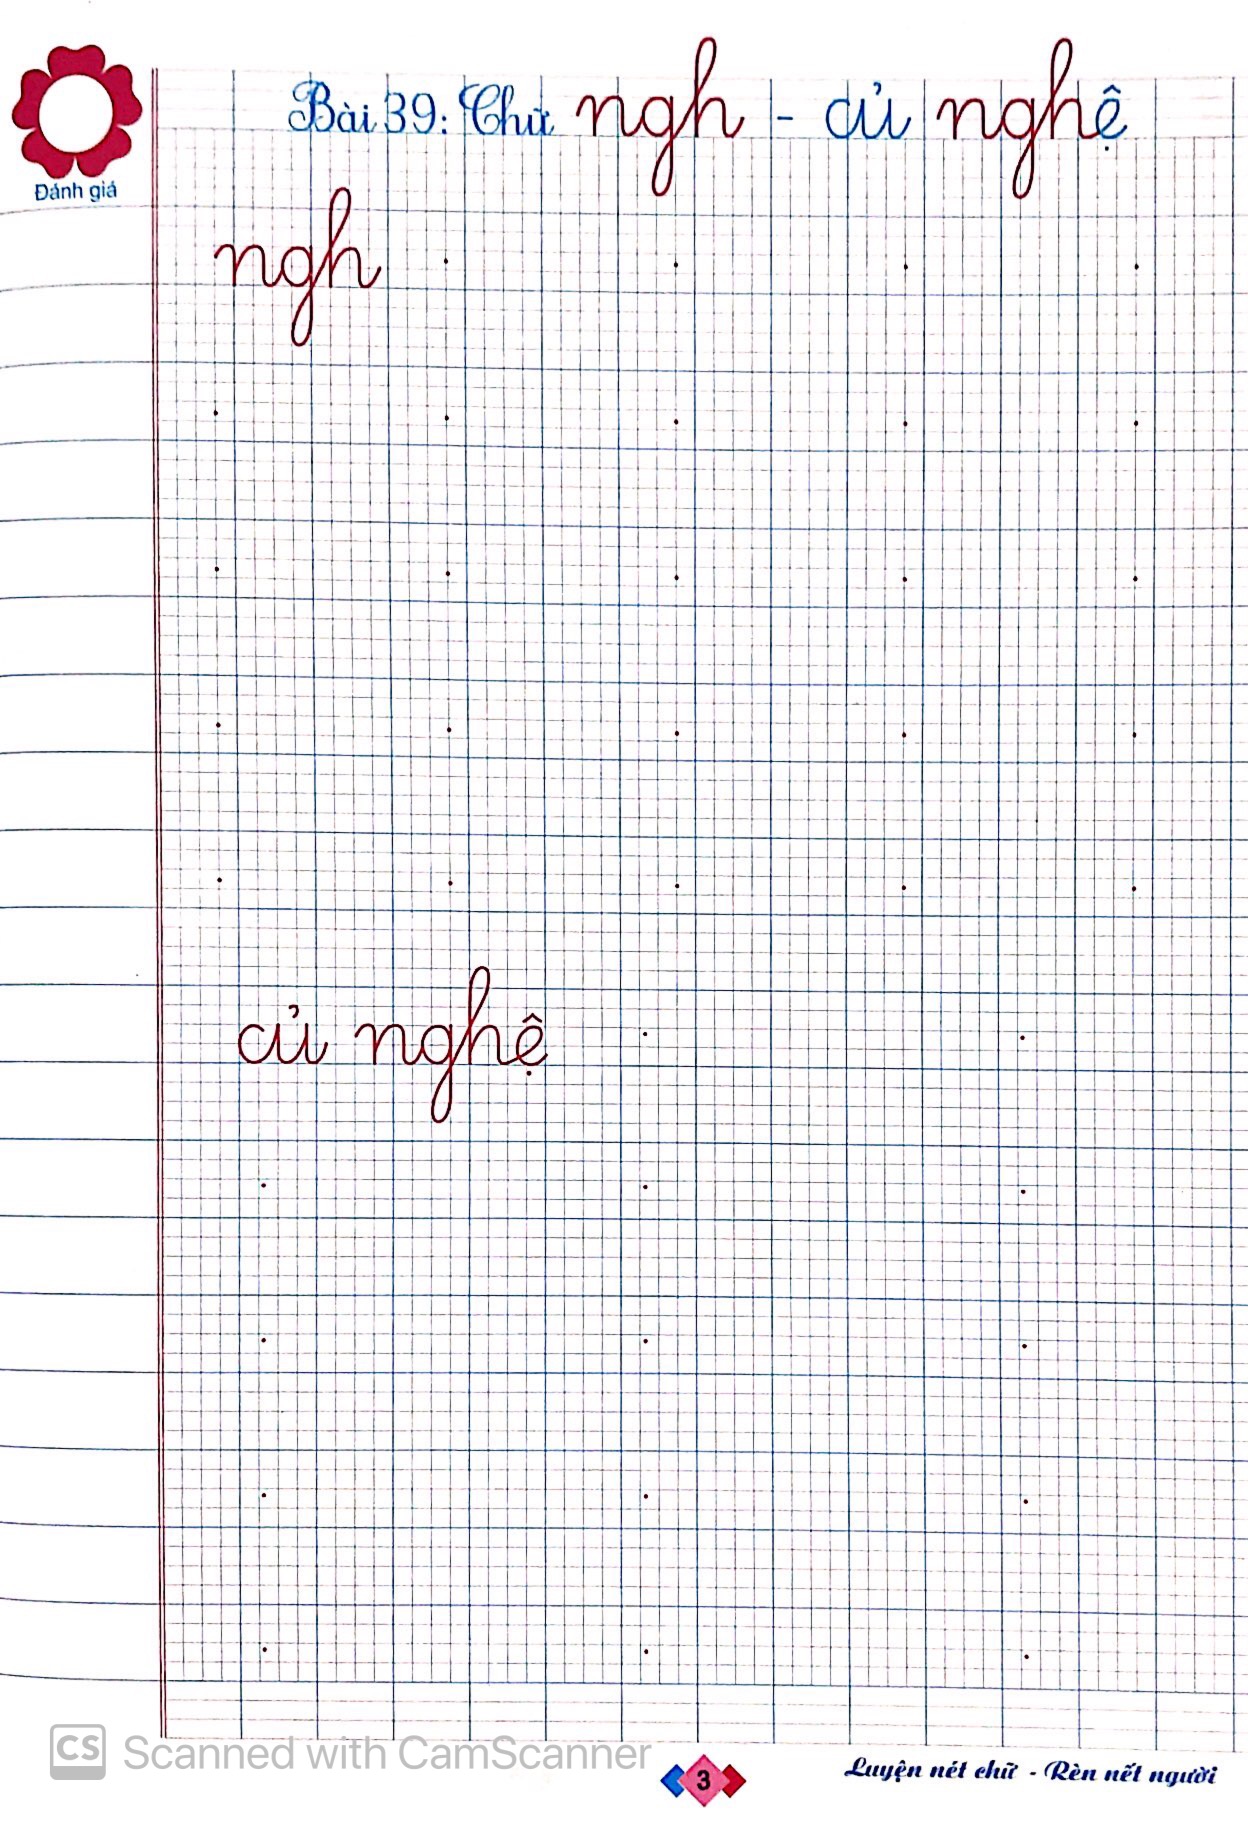 Bài 39: Chữ ngh - củ nghệ
Đánh giá
ngh
củ nghệ
CS Scanned with CamScanner
3
Luyện nét chữ - Rèn nết người